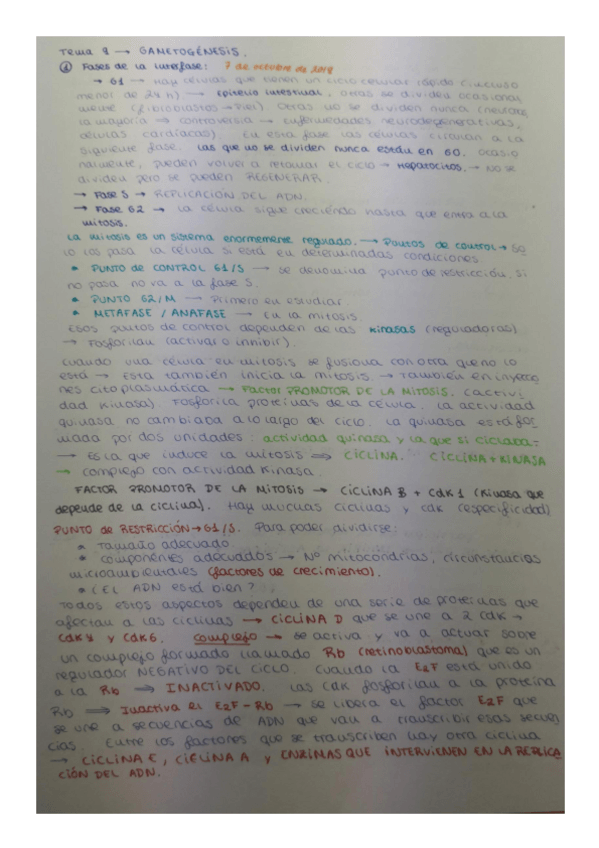 Tema 9 → GAMETOGÉNESIS.
① Fases de la interfase: 7 de octubre de 2019
→ G1 → Hay células que tienen un ciclo celular rápido (incluso
menor de 24 h) → epitelio intestinal, otras se dividen ocasional
mente (fibroblastos → piel). Otras no se dividen nunca (neuronas,
la mayoría → controversia → enfermedades neurodegenerativas,
células cardíacas). En esta fase las células entrarán a la
siguiente fase. Las que no se dividen nunca están en G0. Ocasio
nalmente, pueden volver a retomar el ciclo → Hepatocitos. → No se
dividen pero se pueden REGENERAR.
→ Fase S → REPLICACIÓN DEL ADN.
→ Fase G2 → La célula sigue creciendo hasta que entra a la
mitosis.
La mitosis es un sistema enormemente regulado. → Puntos de control → So
lo los pasa la célula si está en determinadas condiciones
• PUNTO de CONTROL G1/S → se denomina punto de restricción. Si
no pasa no va a la fase S.
• PUNTO G2/M → Primero en estudiar.
• METAFASE / ANAFASE → En la mitosis.
Esos puntos de control dependen de las kinasas (reguladoras)
→ Fosforilan (activar o inhibir).
Cuando una célula en mitosis se fusiona con otra que no lo
está → Esta también inicia la mitosis. → También en inyeccio
nes citoplasmática → Factor PROMOTOR DE LA MITOSIS. (activi
dad kinasa). Fosforila proteínas de la célula. La actividad
quinasa no cambiaba a lo largo del ciclo. La quinasa está for
mada por dos unidades: actividad quinasa y la que sí ciclaba=
→ Es la que induce la mitosis ⇒ CICLINA. CICLINA + KINASA
→ complejo con actividad kinasa.
FACTOR PROMOTOR DE LA MITOSIS → CICLINA B + Cdk1 (kinasa que
depende de la ciclina). Hay muchas ciclinas y cdk (especificidad)
PUNTO de RESTRICCIÓN → G1/S. Para poder dividirse:
• Tamaño adecuado.
• Componentes adecuados → Nº mitocondrias, circunstancias
microambientales (factores de crecimiento).
• ¿El ADN está bien?
Todos estos aspectos dependen de una serie de proteínas que
afectan a las ciclinas → CICLINA D que se une a 2 cdk →
Cdk4 y Cdk6. Complejo → se activa y va a actuar sobre
un complejo formado llamado Rb (retinoblastoma) que es un
regulador NEGATIVO DEL CICLO. Cuando la E2F está unido
a la Rb ⇒ INACTIVADO. Las cdk fosforilan a la proteína
Rb ⇒ Inactiva el E2F-Rb → se libera el factor E2F que
se une a secuencias de ADN que van a transcribir esas secuen
cias. Entre los factores que se transcriben hay otra ciclina
→ CICLINA E, CICLINA A y ENZIMAS QUE INTERVIENEN EN LA REPLICA
CIÓN DEL ADN.